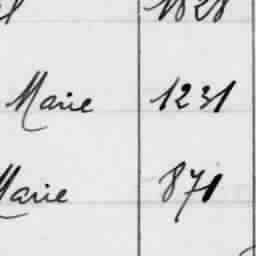 1828
Marie 1231
Marie 871